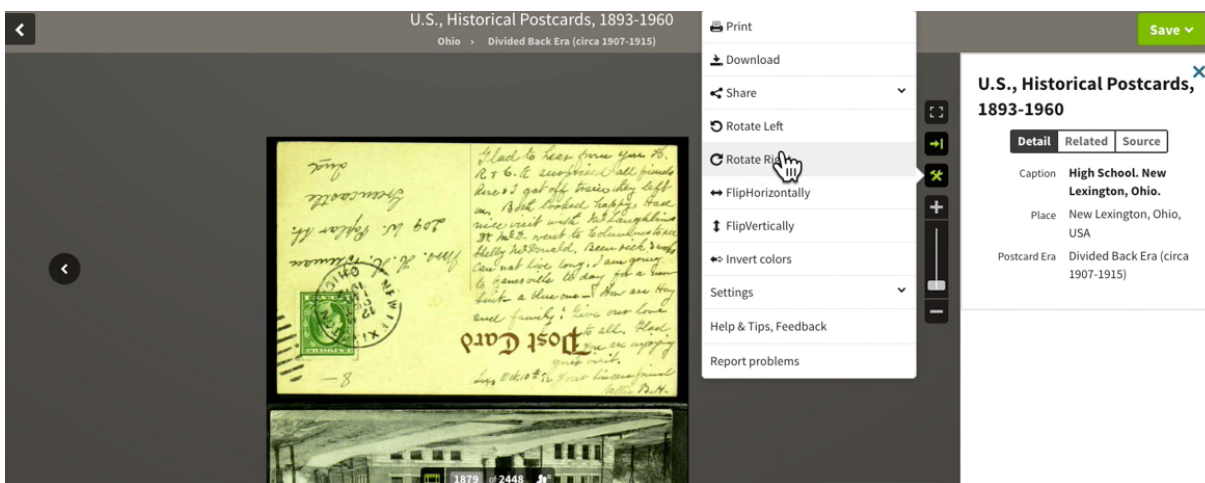 U.S., Historical Postcards, 1893-1960
Ohio › Divided Back Era (circa 1907-1915)
Save
Print
Download
Share
Rotate Left
Rotate Ri
FlipHorizontally
FlipVertically
Invert colors
Settings
Help & Tips, Feedback
Report problems
U.S., Historical Postcards,
1893-1960
Detail Related Source
Caption High School. New
Lexington, Ohio.
Place New Lexington, Ohio,
USA
Postcard Era Divided Back Era (circa
1907-1915)
Glad to hear from you
surprised all friends
got off train they left
Both looked happy Had
nice visit with McLaughlins
went to Columbus to see
Shelby McDonald. Been sick 3 weeks
Can not live long. I am going
to Zanesville to day for a new
suit - a blue one - How are Roy
and family? Give our love
to all. Glad
you are enjoying
your visit.
Your sincere friend
Post Card
209 W. Poplar St.
OHIO
1879 of 2448